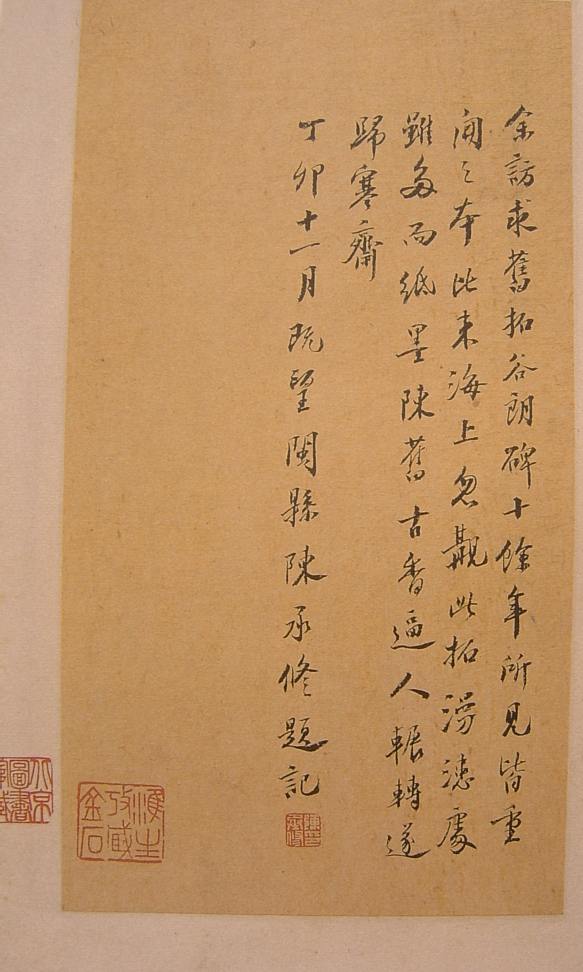 余訪求舊拓谷朗碑十餘年所見皆重
開之本比来海上忽覯此拓漫漶處
雖多而紙墨陳舊古香逼人輾轉遂
歸寒齋
丁卯十一月既望閩縣陳承修題記
淮生攷臧金石
北京圖書